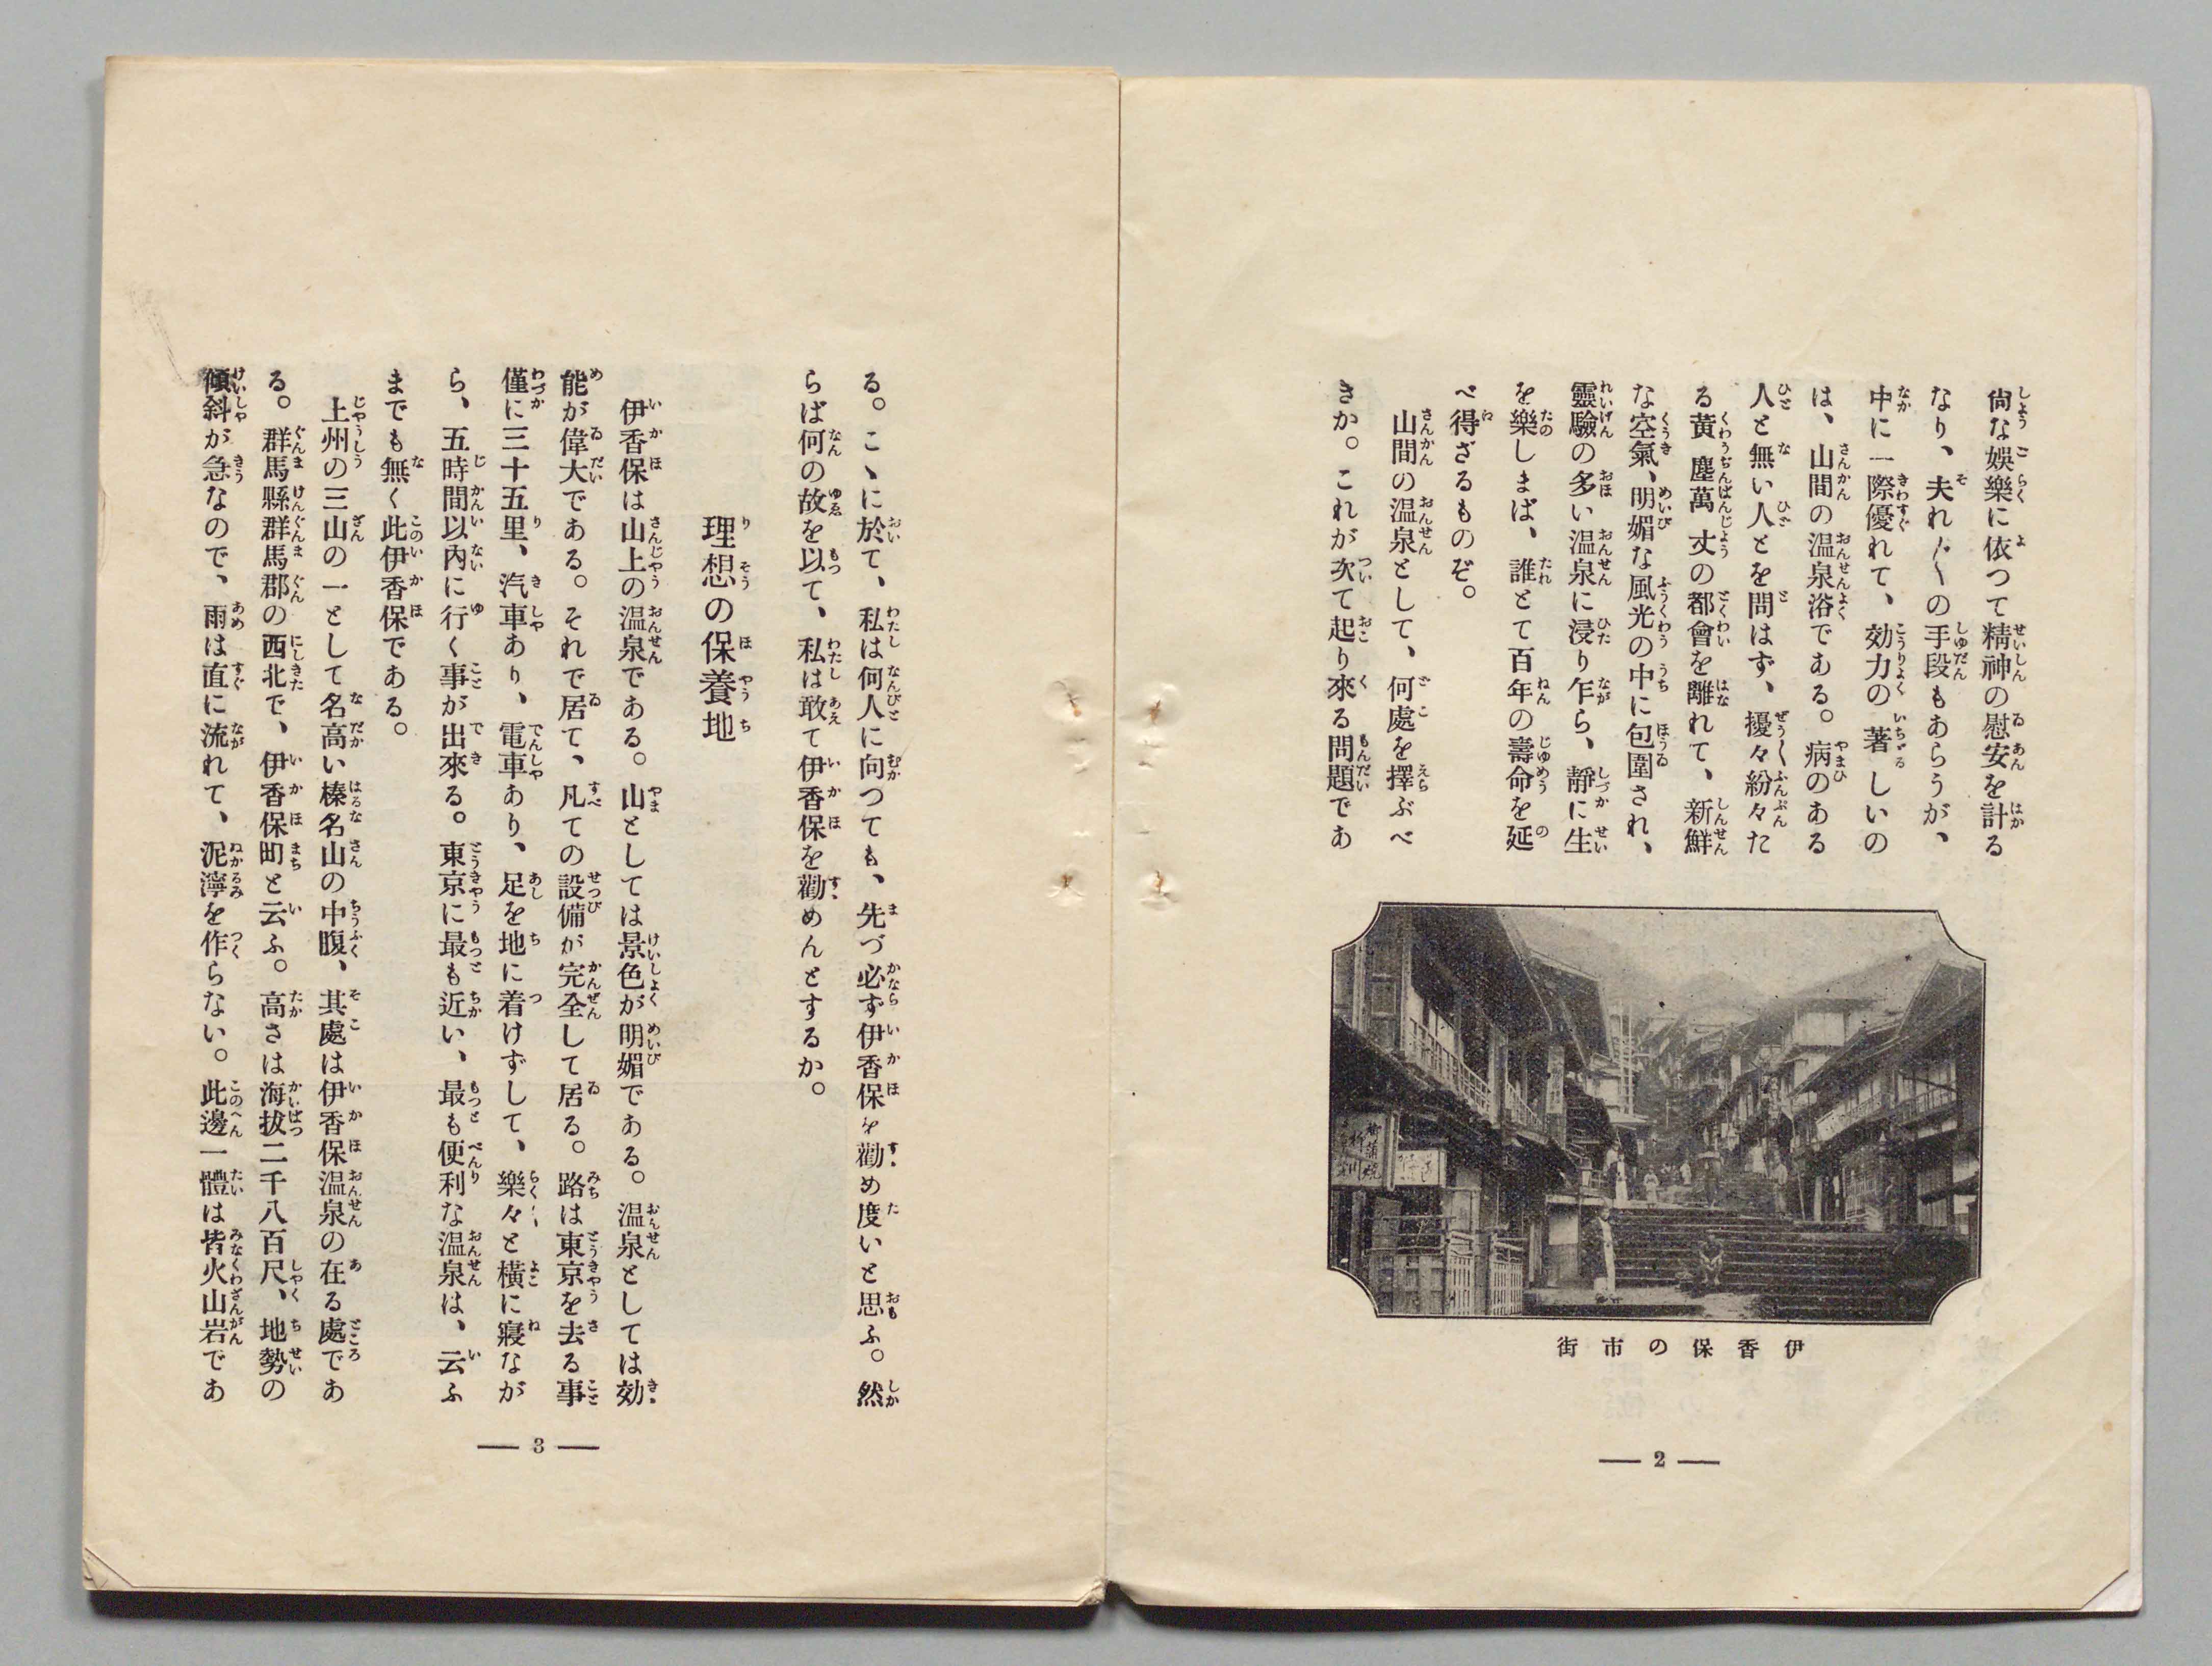 尙な娛樂に依つて精神の慰安を計る
なり、夫れ〴〵の手段もあらうが、
中に一際優れて、効力の著しいの
は、山間の温泉浴である。病のある
人と無い人とを問はず、擾々紛々た
る黃塵萬丈の都會を離れて、新鮮
な空氣、明媚な風光の中に包圍され、
靈驗の多い温泉に浸り乍ら、靜に生
を樂しまば、誰とて百年の壽命を延
べ得ざるものぞ。
山間の温泉として、何處を擇ぶべ
きか。これが次て起り來る問題であ
伊香保の市街
― 2 ―
る。こゝに於て、私は何人に向つても、先づ必ず伊香保を勸め度いと思ふ。然
らば何の故を以て、私は敢て伊香保を勸めんとするか。
理想の保養地
伊香保は山上の温泉である。山としては景色が明媚である。温泉としては効
能が偉大である。それで居て、凡ての設備が完全して居る。路は東京を去る事
僅に三十五里、汽車あり、電車あり、足を地に着けずして、樂々と橫に寢なが
ら、五時間以內に行く事が出來る。東京に最も近い、最も便利な温泉は、云ふ
までも無く此伊香保である。
上州の三山の一として名高い榛名山の中腹、其處は伊香保温泉の在る處であ
る。群馬縣群馬郡の西北で、伊香保町と云ふ。高さは海拔二千八百尺、地勢の
傾斜が急なので、雨は直に流れて、泥濘を作らない。此邊一體は皆火山岩であ
― 3 ―